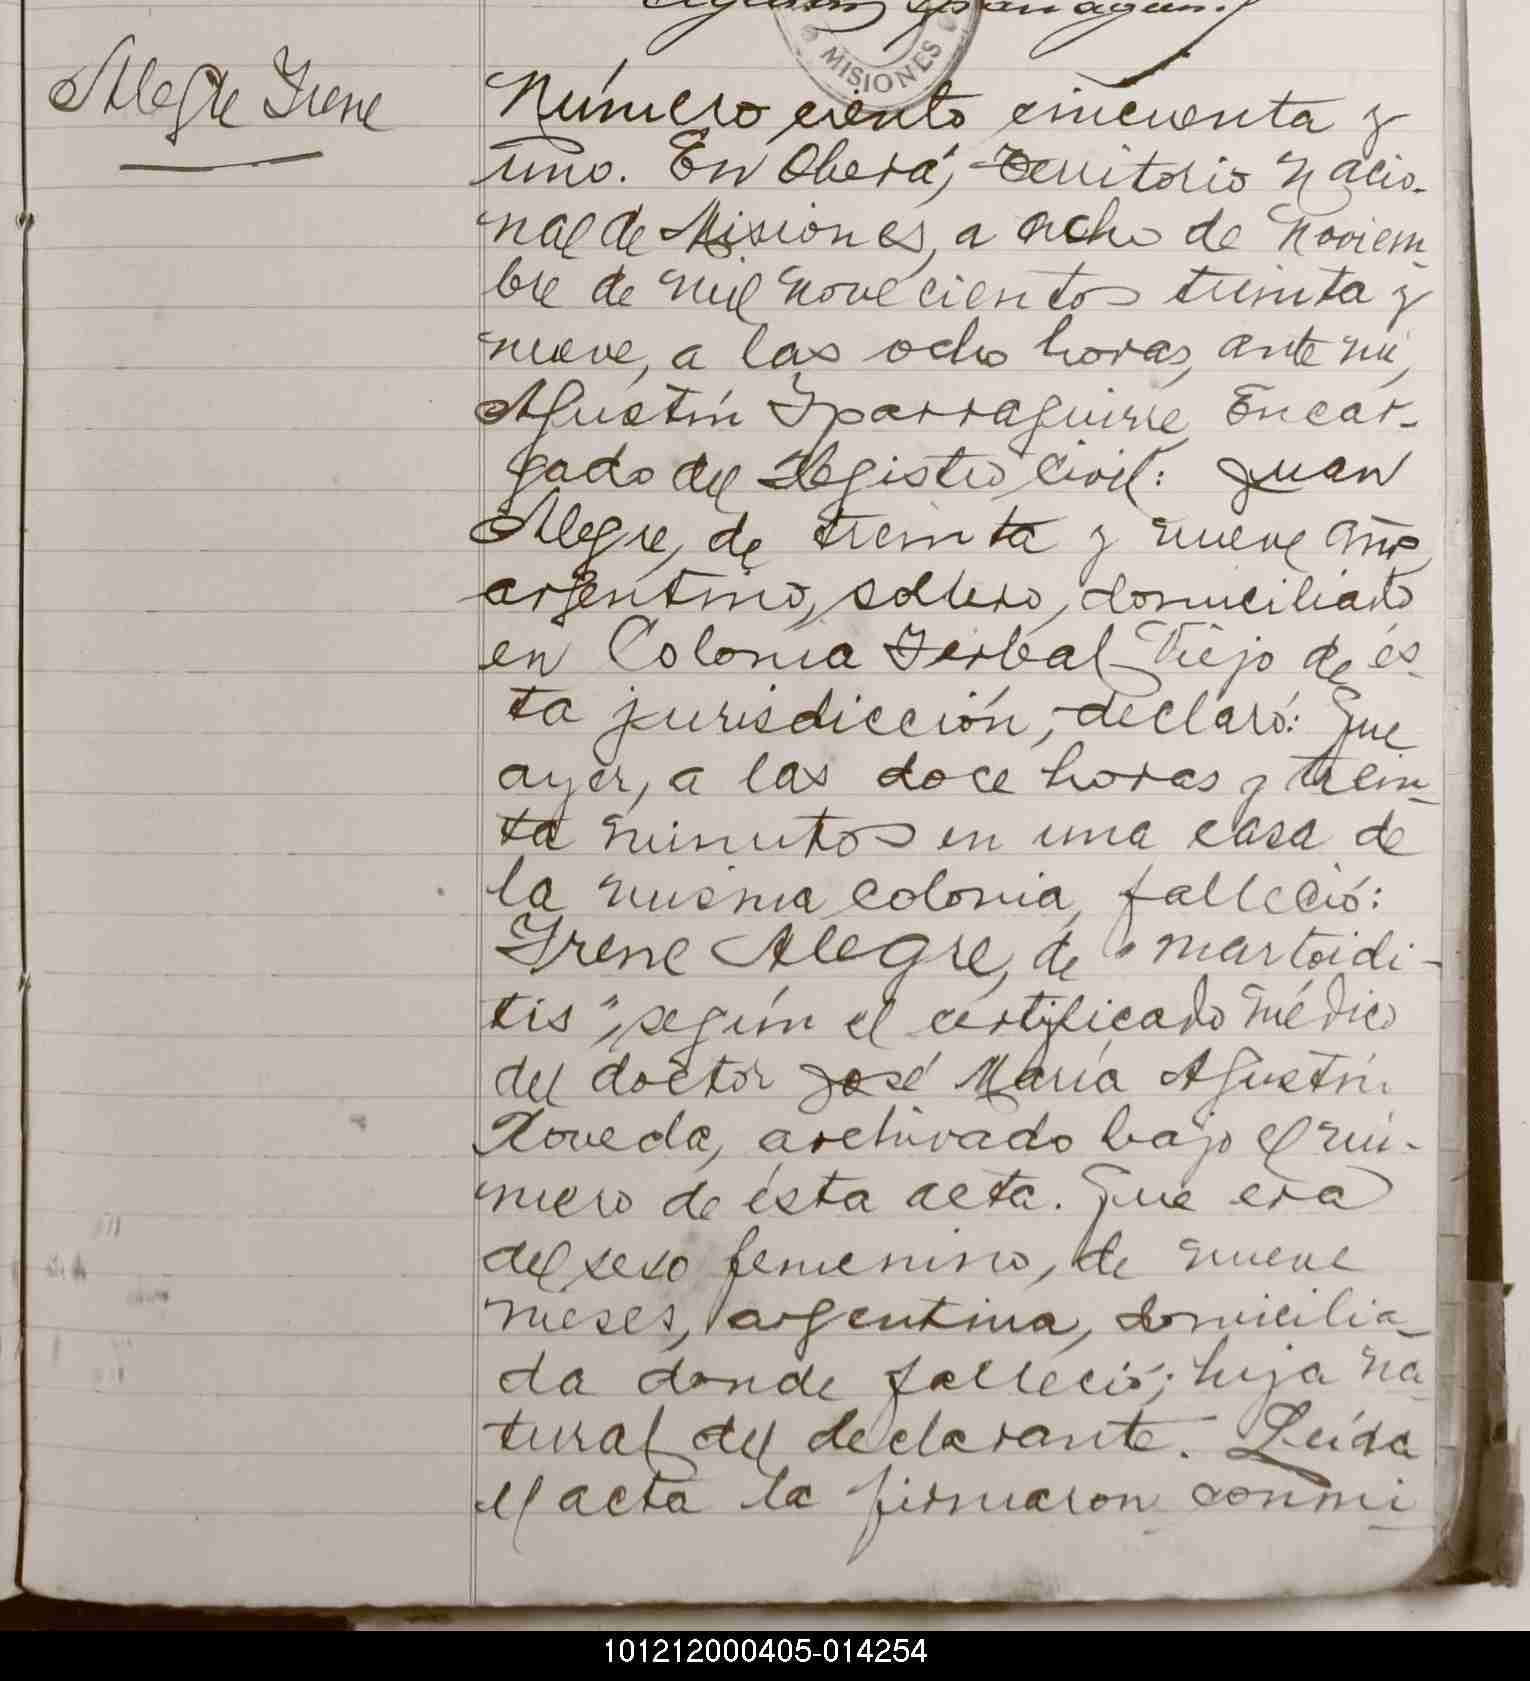 Agustín Iparraguirre
MISIONES
Alegre Irene
Número ciento cincuenta y
uno. En Oberá, Territorio Nacio-
nal de Misiones, a ocho de Noviem-
bre de mil novecientos treinta y
nueve, a las ocho horas, ante mí,
Agustín Iparraguirre, Encar-
gado del Registro Civil: Juan
Alegre, de treinta y nueve años
argentino, soltero, domiciliado
en Colonia Yerbal Viejo de és-
ta jurisdicción, declaró: Que
ayer, a las doce horas y trein-
ta minutos en una casa de
la misma colonia, falleció:
Irene Alegre, de "mastoidi-
tis", según el certificado médico
del doctor José María Agustín
Roveda, archivado bajo el nú-
mero de ésta acta. Que era
del sexo femenino, de nueve
meses, argentina, domicilia-
da donde falleció; hija na-
tural del declarante. Leída
el acta la firmaron conmi-
101212000405-014254